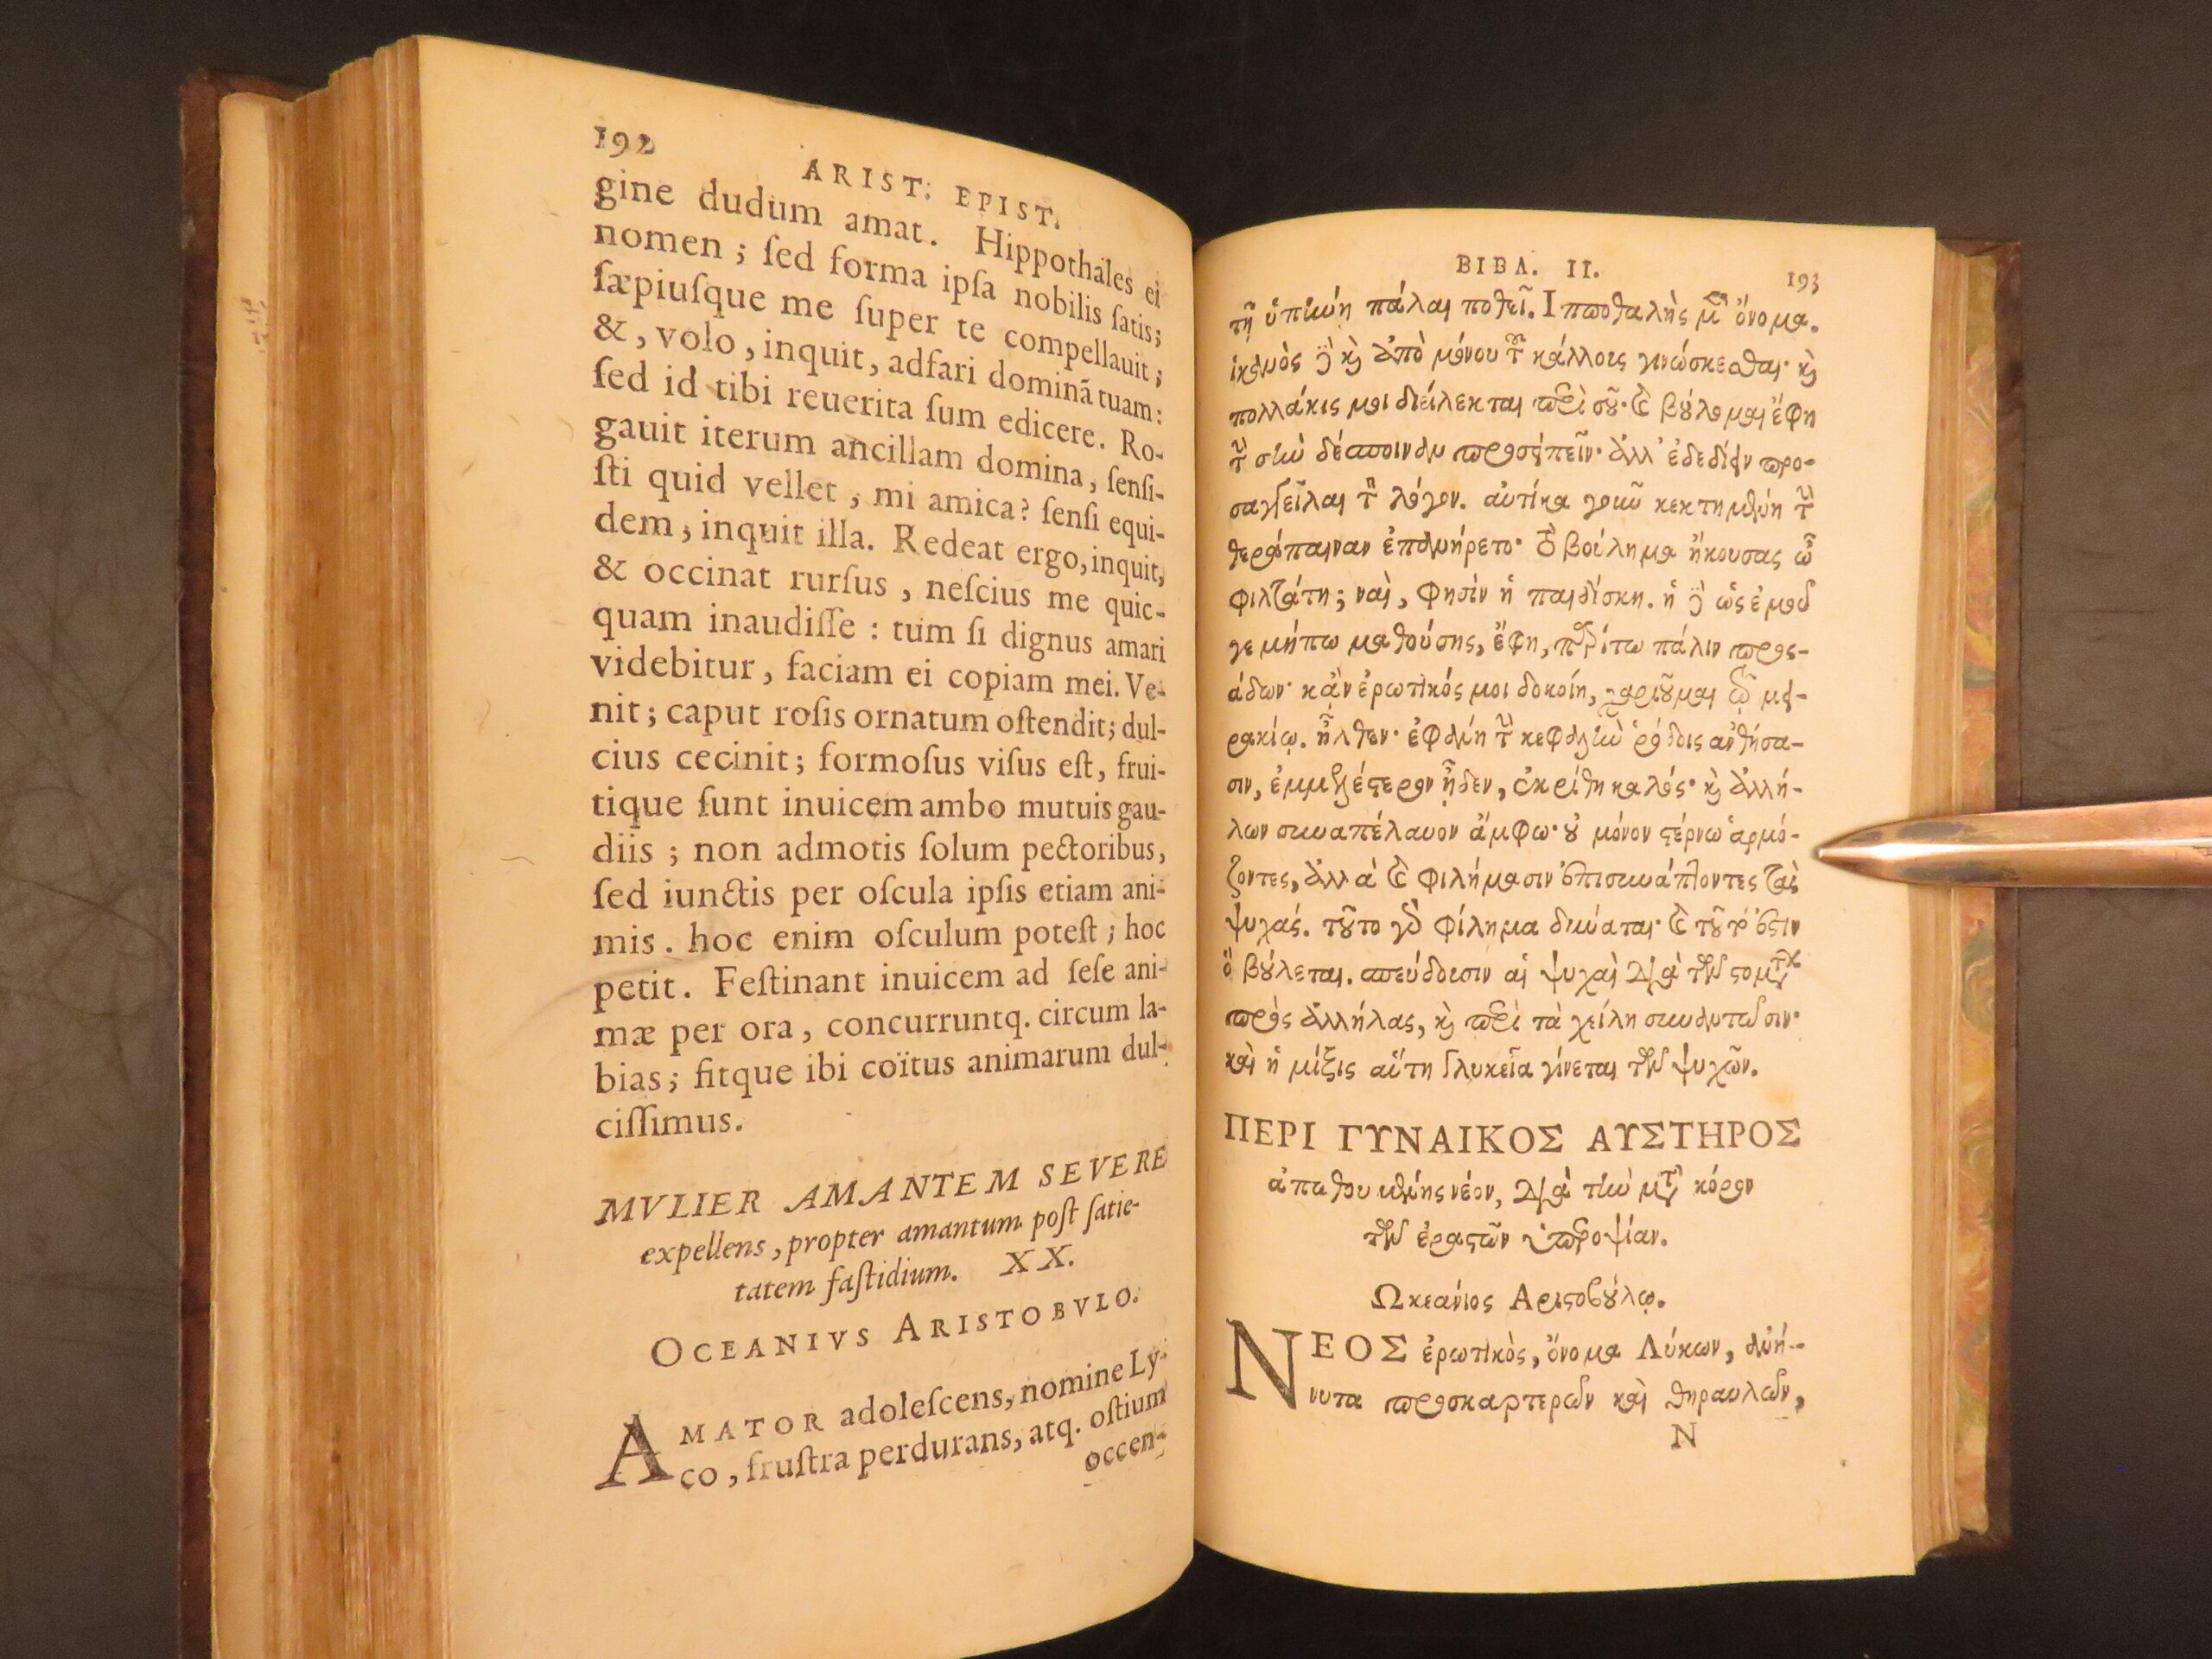 192
ARIST. EPIST.
gine dudum amat. Hippothales ei
nomen ; ſed forma ipſa nobilis ſatis;
ſæpiuſque me ſuper te compellauit ;
& , volo , inquit, adfari dominã tuam:
ſed id tibi reuerita ſum edicere. Ro-
gauit iterum ancillam domina , ſenſi-
ſti quid vellet , mi amica? ſenſi equi-
dem , inquit illa. Redeat ergo, inquit,
& occinat rurſus , neſcius me quic-
quam inaudiſſe : tum ſi dignus amari
videbitur , faciam ei copiam mei. Ve-
nit ; caput roſis ornatum oſtendit; dul-
cius cecinit ; formoſus viſus eſt , frui-
tique ſunt inuicem ambo mutuis gau-
diis ; non admotis ſolum pectoribus,
ſed iunctis per oſcula ipſis etiam ani-
mis . hoc enim oſculum poteſt ; hoc
petit . Feſtinant inuicem ad ſeſe ani-
mæ per ora , concurruntq. circum la-
bias ; fitque ibi coïtus animarum dul-
ciſſimus.
MVLIER AMANTEM SEVERE
expellens , propter amantum poſt ſatie-
tatem faſtidium. XX.
OCEANIVS ARISTOBVLO.
AMATOR adoleſcens, nomine Ly-
co , fruſtra perdurans, atq. oſtium
occen-
ΒΙΒΛ. II.
193
τῇ ὑπὲκείνη πάλαι ποθεῖ. Ιπποθαλὴς μὲν ὄνομα.
ἱκανὸς δὲ καὶ ἀπὸ μόνου τοῦ κάλλους γινώσκεσθαι· καὶ
πολλάκις μοι διείλεκται περὶ σοῦ· καὶ βούλομαι ἔφη
τὴν σὴν δέσποιναν προσειπεῖν· ἀλλ' ἐδεδίειν προ-
σαγγεῖλαι τὸν λόγον. αὐτίκα γοῦν κεκτημένη τὴν
θεράπαιναν ἐπανήρετο· τὸ βούλημα ἤκουσας ὦ
φιλτάτη; ναὶ, φησὶν ἡ παιδίσκη. ἡ δὲ ὡς ἐμοῦ
γε μήπω μαθούσης, ἔφη, παρίτω πάλιν προσ-
άδων· κἂν ἐρωτικός μοι δοκοίη, χαριοῦμαι τῷ μει-
ρακίῳ. ἦλθεν· ἐφάνη τὴν κεφαλὴν ῥόδοις ἀνθήσα-
σιν, ἐμμελέστερον ᾖδεν, ἐκρίθη καλός· καὶ ἀλλή-
λων συναπέλαυον ἄμφω· οὐ μόνον στέρνω ἁρμό-
ζοντες, ἀλλὰ καὶ φιλήμασιν ἐπισυνάπτοντες τὰς
ψυχάς. τοῦτο γὰρ φίλημα δύναται· καὶ τοῦτό ἐστιν
ὃ βούλεται. σπεύδουσιν αἱ ψυχαὶ διὰ τῶν στομάτων
πρὸς ἀλλήλας, καὶ περὶ τὰ χείλη συναντῶσιν·
καὶ ἡ μίξις αὕτη γλυκεῖα γίνεται τῶν ψυχῶν.
ΠΕΡΙ ΓΥΝΑΙΚΟΣ ΑΥΣΤΗΡΟΣ
ἀπωθουμένης νέον, διὰ τὴν μετὰ κόρον
τῶν ἐραστῶν ὑπεροψίαν.
Ωκεάνιος Αριστοβούλῳ.
ΝΕΟΣ ἐρωτικὸς, ὄνομα Λύκων, ἀνή-
νυτα προσκαρτερῶν καὶ θηραυλῶν,
N